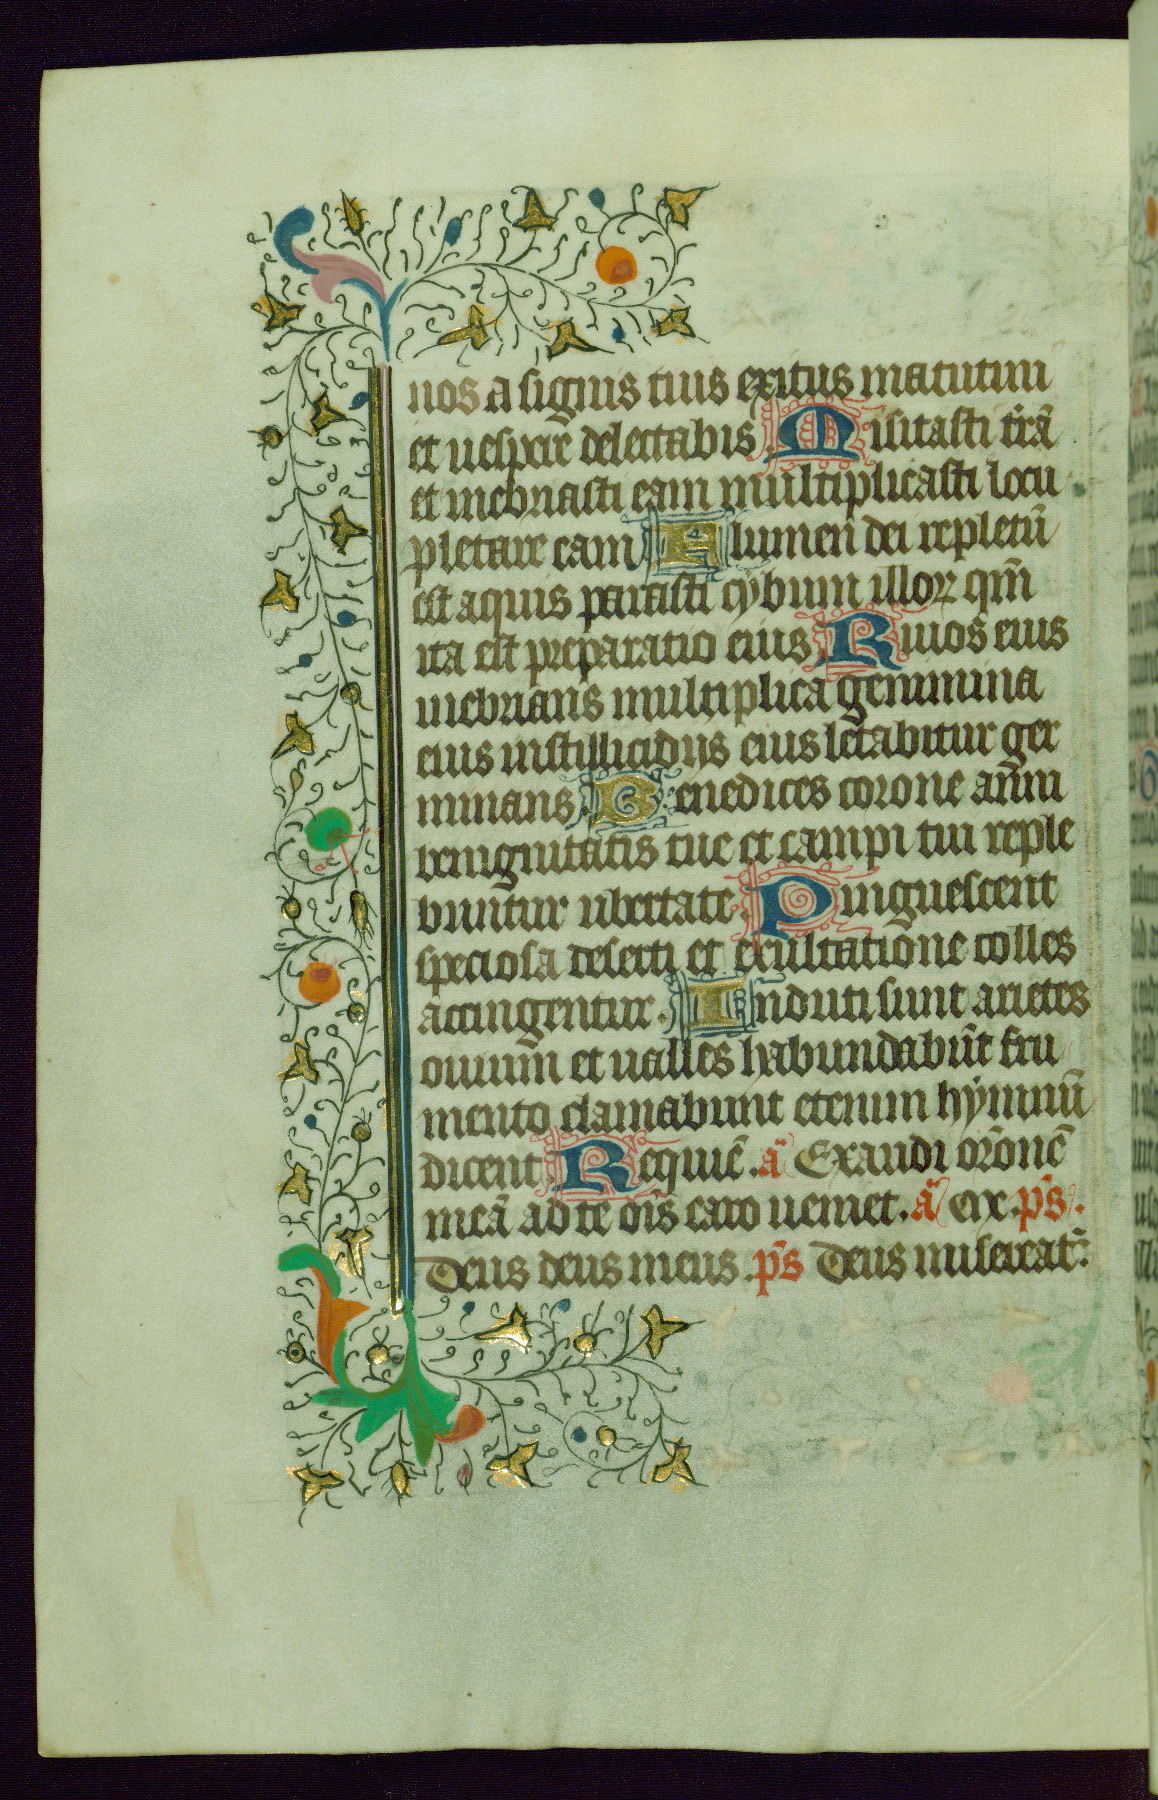 nos a signis tuis exitus matutini
et uespere delectabis Uisitasti t̄rā
et inebriasti eam multiplicasti locu
pletare eam Flumen dei repletū
est aquis parasti cybum illoꝝ qm̄
ita est preparatio eius Riuos eius
inebrians multiplica genimina
eius in stillicidiis eius letabitur ger
minans Benedices corone anni
benignitatis tue et campi tui reple
buntur ubertate Pinguescent
speciosa deserti et exultatione colles
accingentur. Induti sunt arietes
ouium et ualles habundabūt fru
mento clamabunt etenim hymnū
dicent Requiē. ā Exaudi orōnē
meā ad te oīs caro ueniet. ā Ex. ps̄.
Deus deus meus. ps̄ Deus misereat᷑.